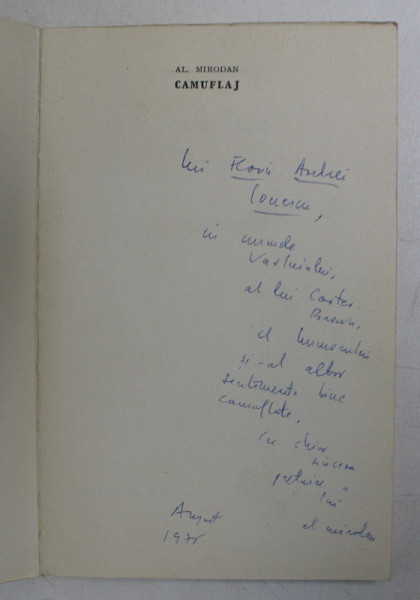 AL. MIRODAN
CAMUFLAJ
lui Florin Andrei
Ionescu,
în numele
Vasluiului,
al lui Carter
Brown,
al humorului
și-al altor
sentimente bine
camuflate,
cu
sincera
prețuire a
lui
al mirodan
August
1975